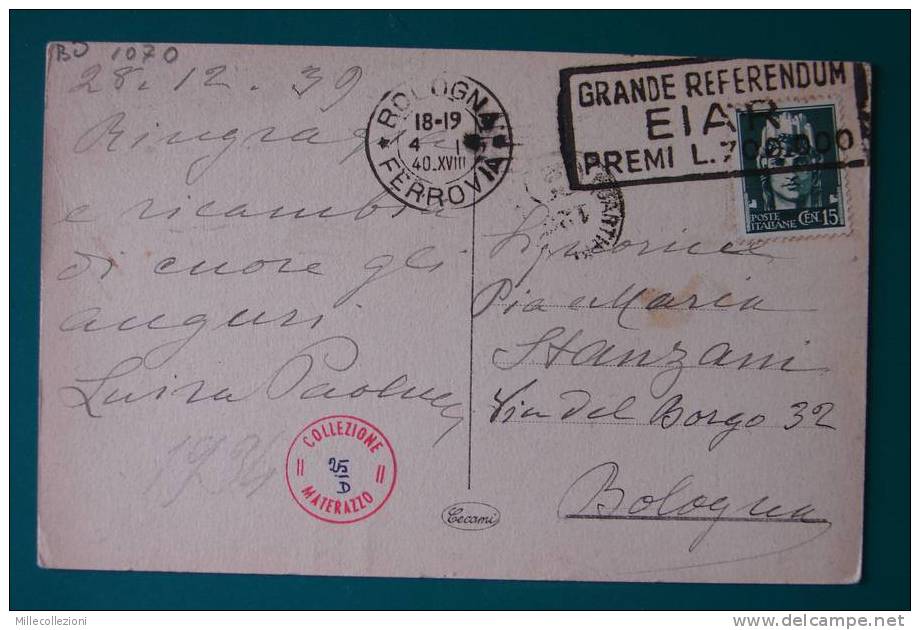 BO 1070
28.12.39
Ringrazia
e ricambia
di cuore gli
auguri
Luisa Paolucci
BOLOGNA
18-19
4 1
40.XVIII
FERROVIA
GRANDE REFERENDUM
EIAR
PREMI L.700.000
POSTE
ITALIANE
CEN. 15
Signorine
Pia e Maria
Stanzani
Via del Borgo 32
Bologna
COLLEZIONE
25
D
MATERAZZO
Cecami
Millecollezioni
www.delcampe.net